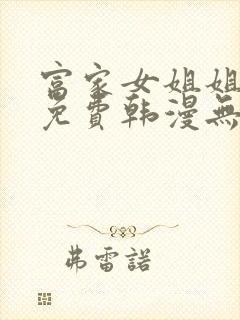 富家女姐姐
免費韩漫無
弗雷諾